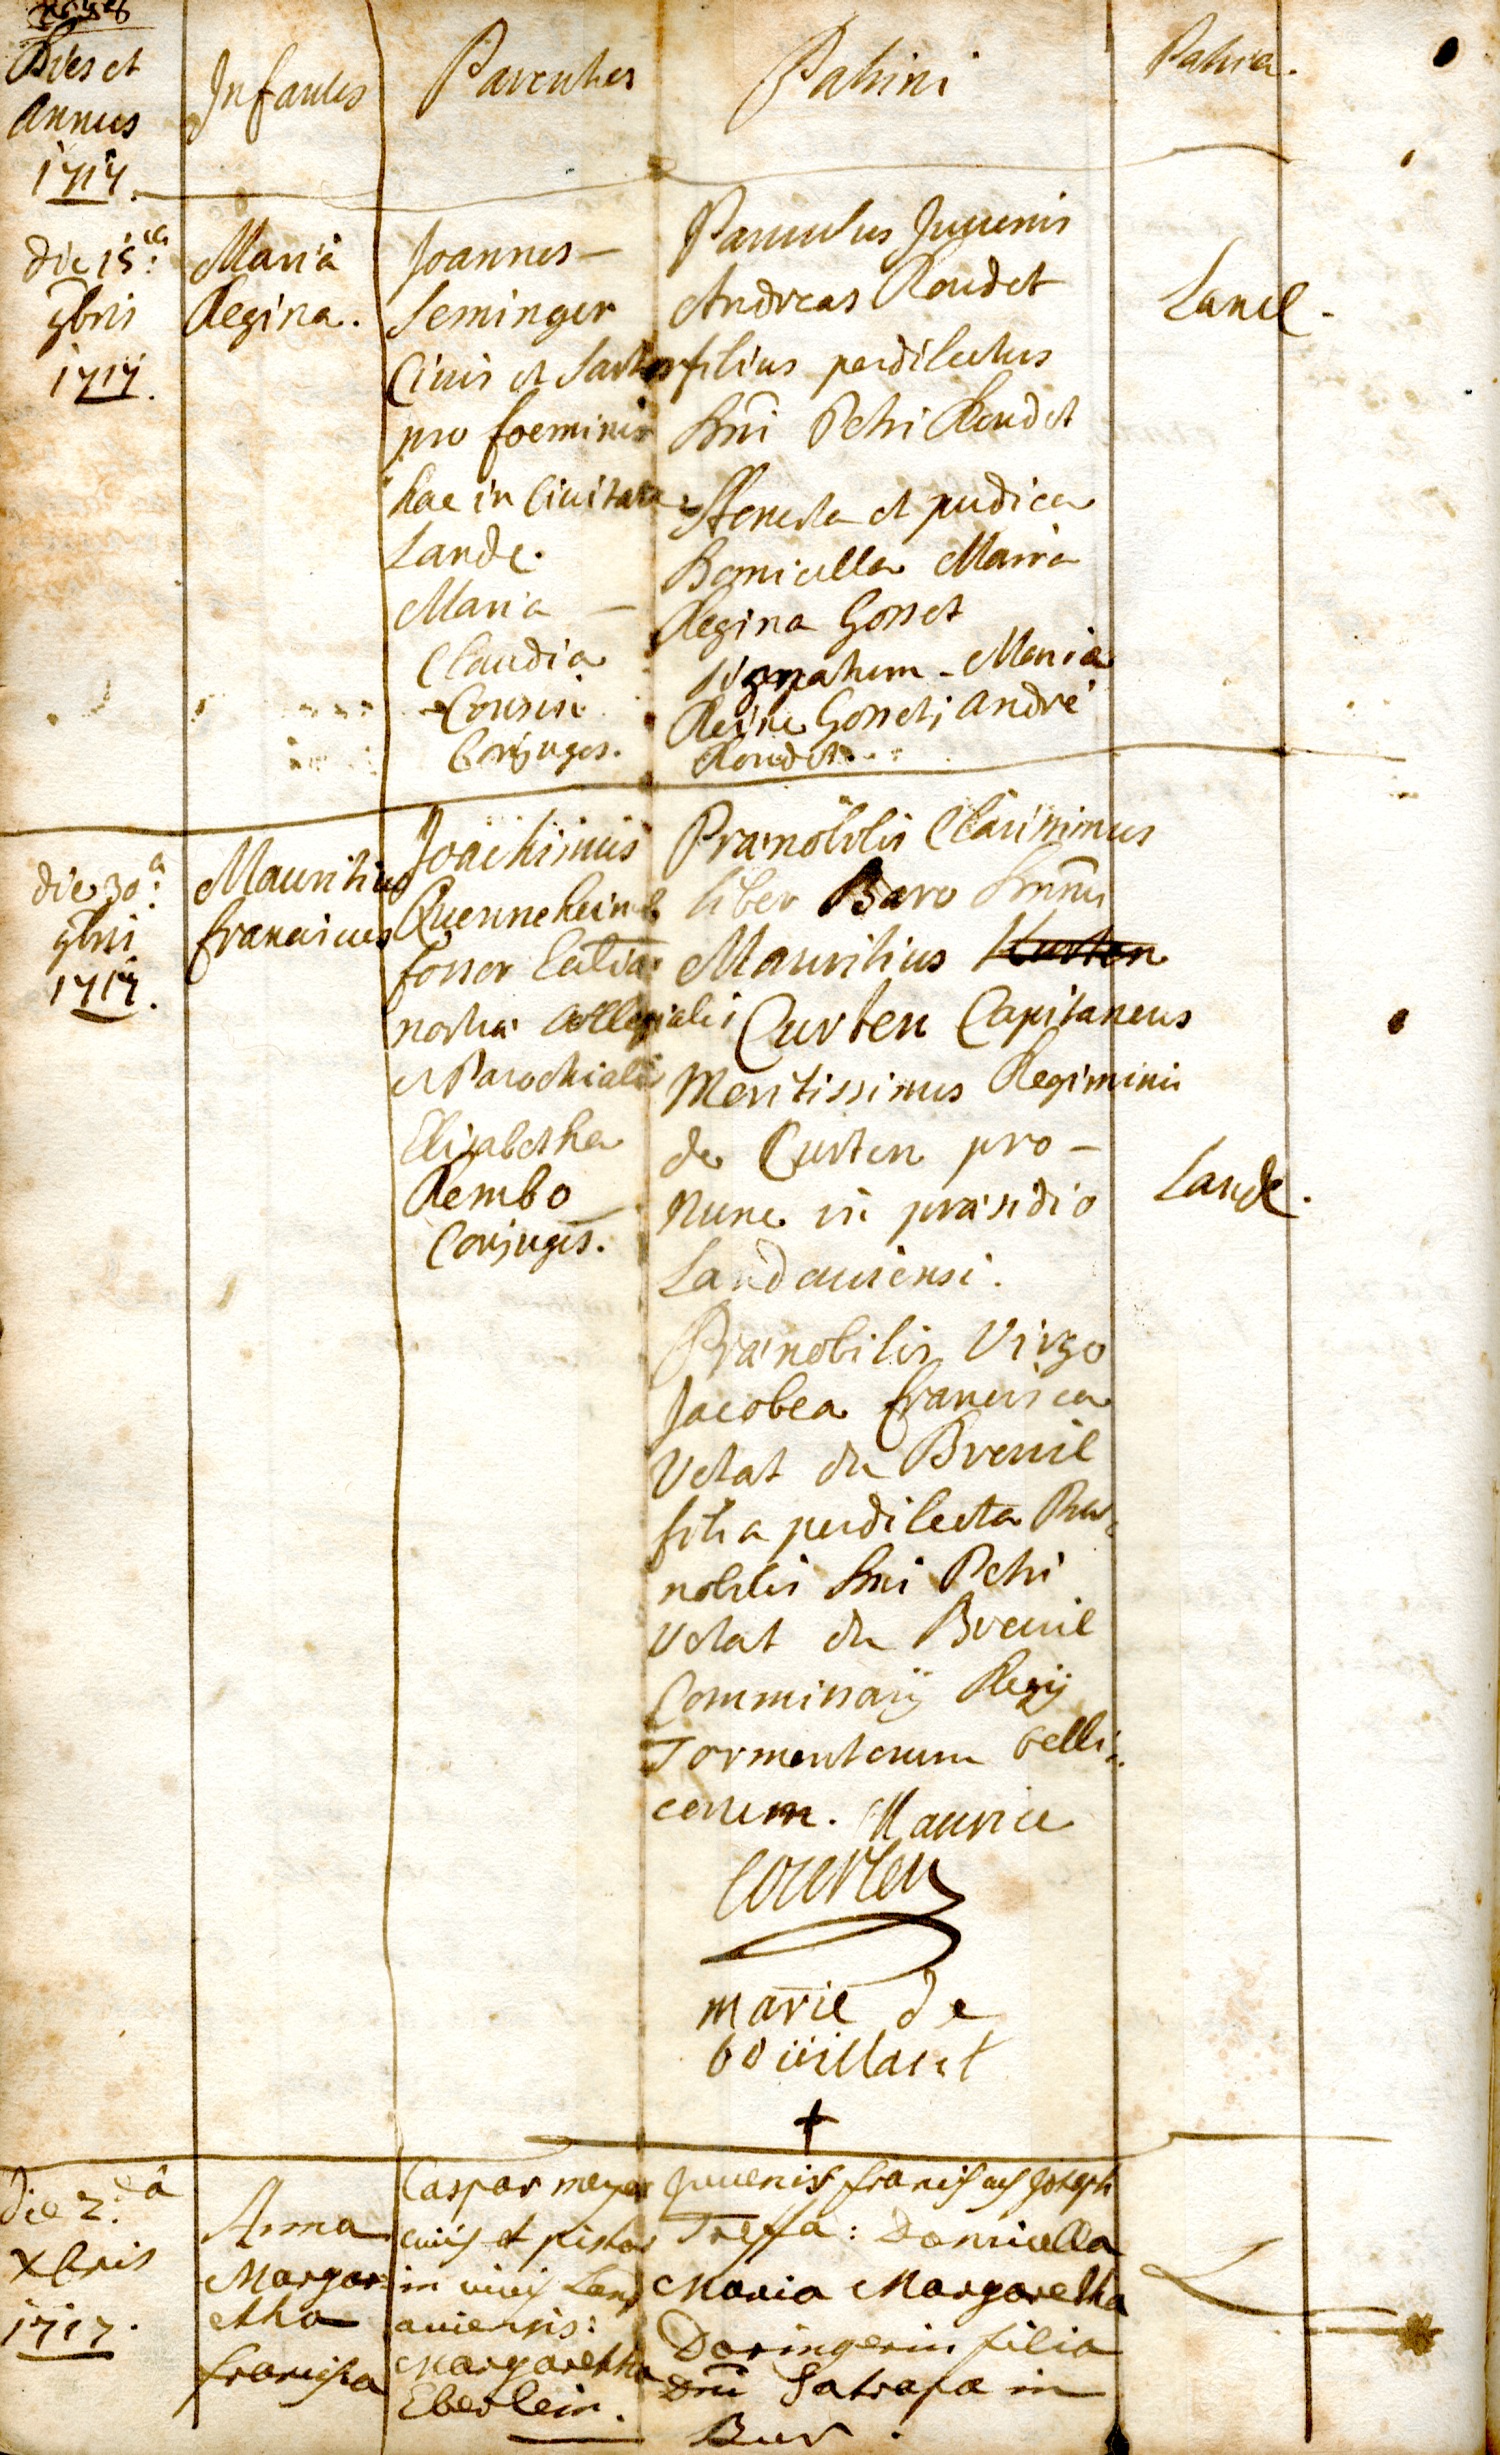 Dies et
Annus
1717.
Infantes
Parentes
Patrini
Patria.
die 15ta:
9bris
1717.
Maria
Regina.
Joannes –
Seminger
Civis et Sartor
pro foeminis
hac in Civitate
Lande.
Maria –
Claudia
Cousin
Conjuges.
Parvulus Juvenis
Andreas Roudet
filius perdilectus
Dni Petri Roudet
Honesta et pudica
Domicella Maria
Regina Gosset
signatum – Maria
Reine Gosset; André
Roudet.
Land.
die 30a:
9bris
1717.
Mauritius
franciscus
Joachimus
Quenneheim
fossor Ecclia
nostra Collegialis
et Parochialis
Elizabetha
Rembo
Conjuges.
Pranobilis Clarissimus
liber Baro Dnus
Mauritius Kurten
Curten Capitaneus
Meritissimus Regiminis
de Curten pro –
nunc in prasidio
Landaviensi.
Pranobilis Virgo
Jacobea francisca
Vetat du Breuil
filia perdilecta Pra-
nobilis Dni Petri
Vetat du Breuil
Commissarij Regij
Tormentorum belli-
corum. Maurice
Courten
marie de
boüillant
+
Lande.
die 2.da
Xbris
1717.
Anna
Margar
etha
francisca
Caspar meyer
civis et pistor
in civis Land
aviensis:
Margaretha
Eberlein.
Juvenis franciscus Joseph
Treffa: Domicella
Maria Margaretha
Doringerin filia
Dni Satrapa in
Bur.
L